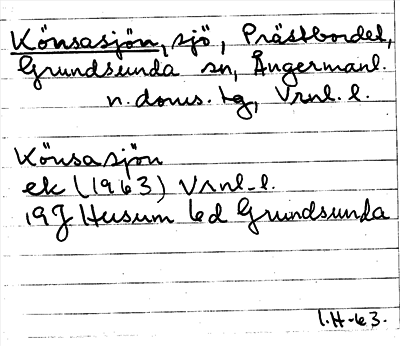 Könsasjön, sjö, Prästbordet,
Grundsunda sn, Ångermanl.
n. doms. tg, Vrnl. l.
Könsasjön
ek (1963) Vrnl. l.
19J Husum bd Grundsunda
l.H-63.